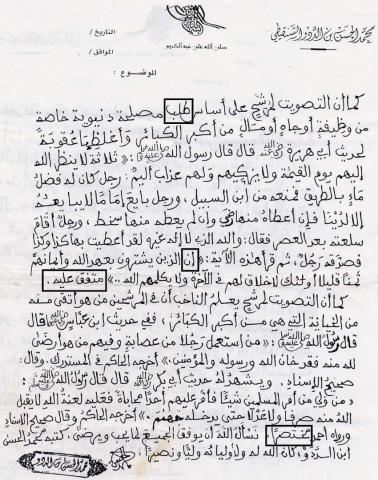 محمد الحسن بن الددو الشنقيطي
التاريخ /
صلى الله على نبيه الكريم
الموافق /
الموضوع :
كما أن التصويت لمرشح على أساس طلب مصلحة دنيوية خاصة
من وظيفة أو جاه أو مال من أكبر الكبائر وأغلظها عقوبة
لحديث أبي هريرة رضي الله عنه قال قال رسول الله ﷺ : «ثلاثة لا ينظر الله
إليهم يوم القيمة ولا يزكيهم ولهم عذاب أليم : رجل كان له فضل
ماء بالطريق فمنعه من ابن السبيل ، ورجل بايع إماما لا يبايعه
إلا لدنيا فإن أعطاه منها رضي وإن لم يعطه منها سخط ، ورجل أقام
سلعته بعد العصر فقال : والله الذي لا إله غيره لقد أعطيت بها كذا وكذا
فصدقه رجل ، ثم قرأ هذه الآية : (إن الذين يشترون بعهد الله وأيمانهم
ثمنا قليلا أولئك لا خلاق لهم في الآخرة ولا يكلمهم الله ..» متفق عليه .
كما أن التصويت لمرشح يعلم الناخب أن في المرشحين من هو أتقى منه
من الخيانة التي هي من أكبر الكبائر ، ففي حديث ابن عباس قال
قال رسول الله ﷺ : «من استعمل رجلا من عصابة وفيهم من هو أرضى
لله منه فقد خان الله ورسوله والمؤمنين» أخرجه الحاكم في المستدرك ، وقال :
صحيح الإسناد ، ويشهد له حديث أبي بكر رضي الله عنه قال قال رسول الله ﷺ
«من ولي من أمر المسلمين شيئا فأمر عليهم أحدا محاباة فعليه لعنة الله لا يقبل
الله منه صرفا ولا عدلا حتى يدخله جهنم» أخرجه الحاكم وقال صحيح الإسناد
ورواه أحمد مختصرا ، نسأل الله أن يوفق الجميع لما يحب ويرضى ، كتبه محمد الحسن
ابن الددو ، كان الله له ولأوليائه وليا ونصيرا .
محمد الحسن بن الددو